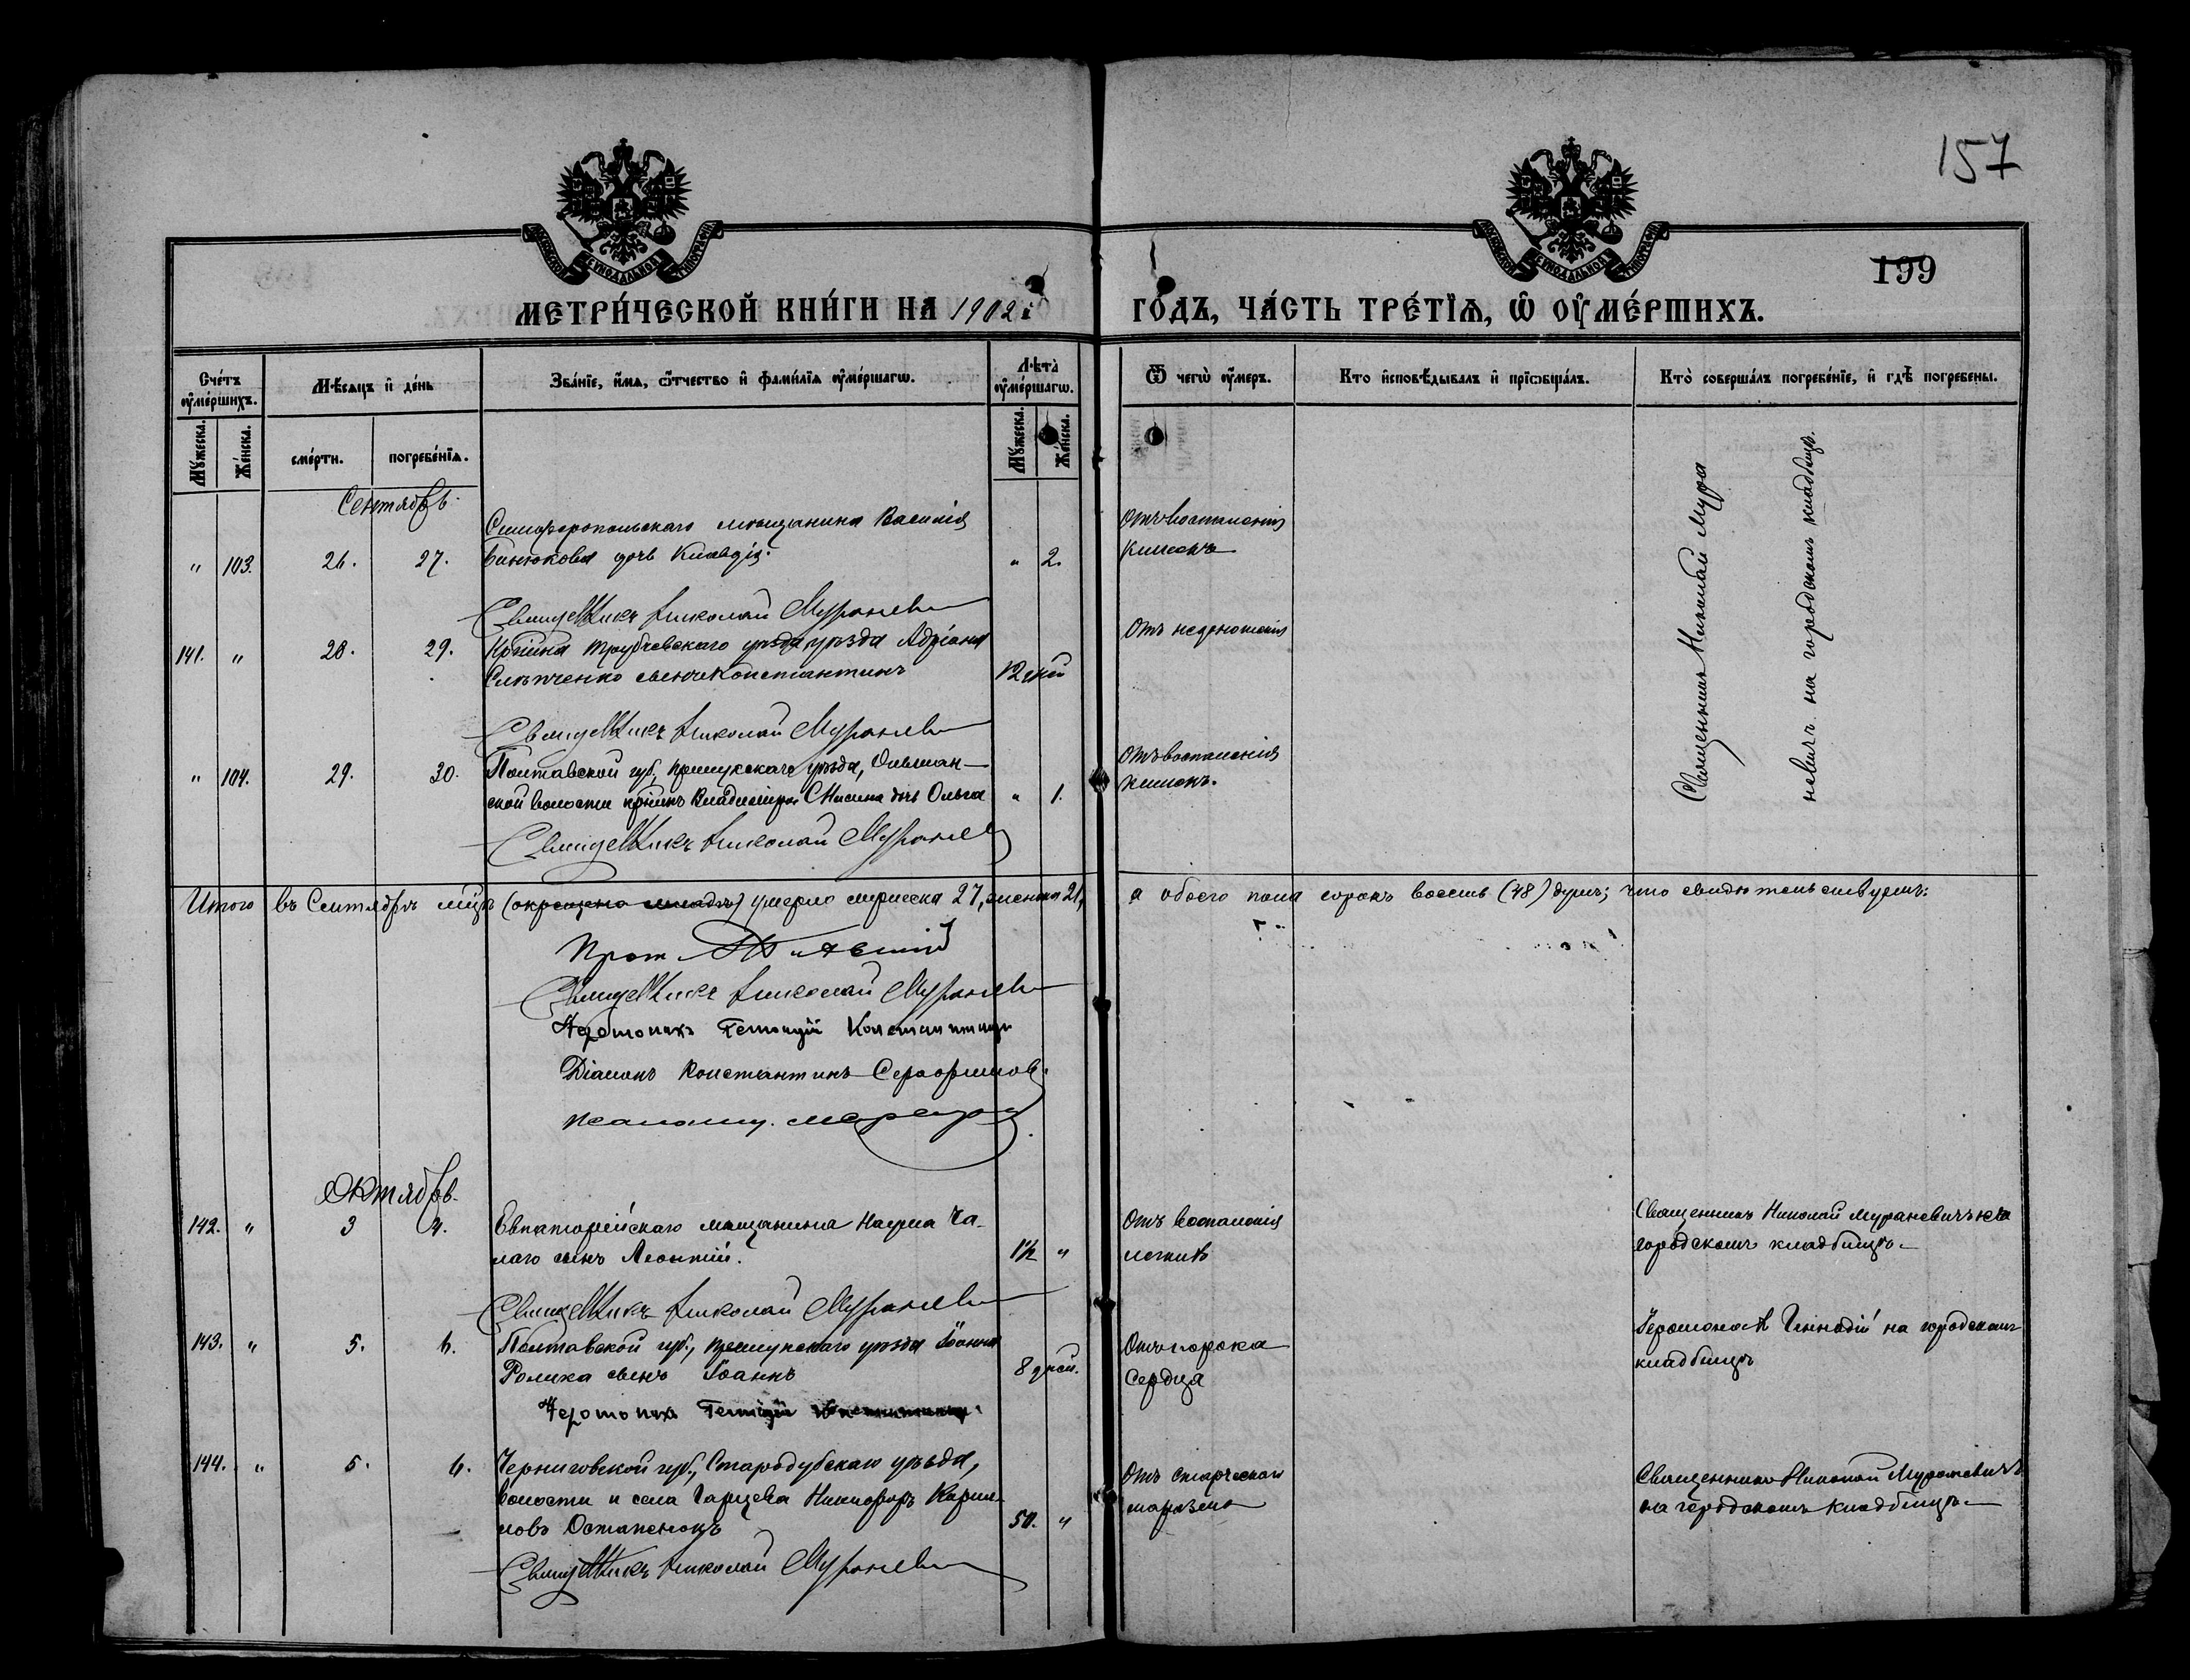 157
199
МЕТРИ́ЧЕСКОЙ КНИ́ГИ НА 1902 й ГО́ДЪ, ЧА́СТЬ ТРЕ́ТІѦ, Ѿ ОУМЕ́РШИХЪ.
Сче́тъ оуме́ршихъ.
Мѣ́сяцъ и де́нь
Зва́ніе, и́мѧ, о́тчество и фами́лїѧ оуме́ршагѡ.
Лѣта̀ оуме́ршагѡ.
Ѿ чегѡ̀ оу́меръ.
Кто исповѣ́дывалъ и прїѡбща́лъ.
Кто̀ соверша́лъ погребе́нїе, и гдѣ̀ погребены.
Мꙋ́жеска.
Же́нска.
сме́рти.
погребе́нїѧ.
Мꙋ́жеска.
Же́нска.
Сентябрь.
Симферопольскаго мѣщанина Василія
„ 103. 26. 27. Бинюкова дочь Клавдія. „ 2.
Отъ воспаленія
кишекъ
Священникъ Николай Мура
невичъ на городскомъ кладбищѣ.
Свящеⷩникъ Николай Муранев
141. „ 28. 29. Крⷭ҇тнина Трубчевскаго уѣзда уѣзда Адріана
сынъ Константинъ 12 дней
Отъ недоношенія
Свящеⷩникъ Николай Муранев
„ 104. 29. 30. Полтавской губ., Прилукскаго уѣзда, Ольшан-
ской волости крⷭ҇тнинъ Владиміра дочь Ольга „ 1.
Отъ воспаленія
кишекъ.
Свящеⷩникъ Николай Муранев
Итого въ Сентябрѣ мцѣ (окрещено младъ) умерло мужеска 27, женска 21, а обоего пола сорокъ восемь (48) душъ; что свидѣтельствуемъ:
Прот.
Свящеⷩникъ Николай Муранев
Іеромонахъ Геннадій
Діаконъ Константинъ Серафимовъ
Псаломщ.
Октябрь.
142. „ 3 4. Евпаторійскаго мѣщанина Наума Ча-
лаго сынъ Леонтій. 1½ „
Отъ воспаленія
легкихъ
Священникъ Николай Мураневичъ на
городскомъ кладбищѣ
Свящеⷩникъ Николай Муранев
143. „ 5. 6. Полтавской губ., Прилукскаго уѣзда Іоанна
Ролика сынъ Іоаннъ 8 дней.
Отъ порока
сердца
Іеромонахъ Геннадій на городскомъ
кладбищѣ
Іеромонахъ Геннадій
144. „ 5. 6. Черниговской губ., Стародубскаго уѣзда,
волости и села Гарцева Никифоръ Карпи-
ловъ Остапенокъ 50. „
Отъ старческаго
маразма
Священникъ Николай Мураневичъ
на городскомъ кладбищѣ
Свящеⷩникъ Николай Муранев